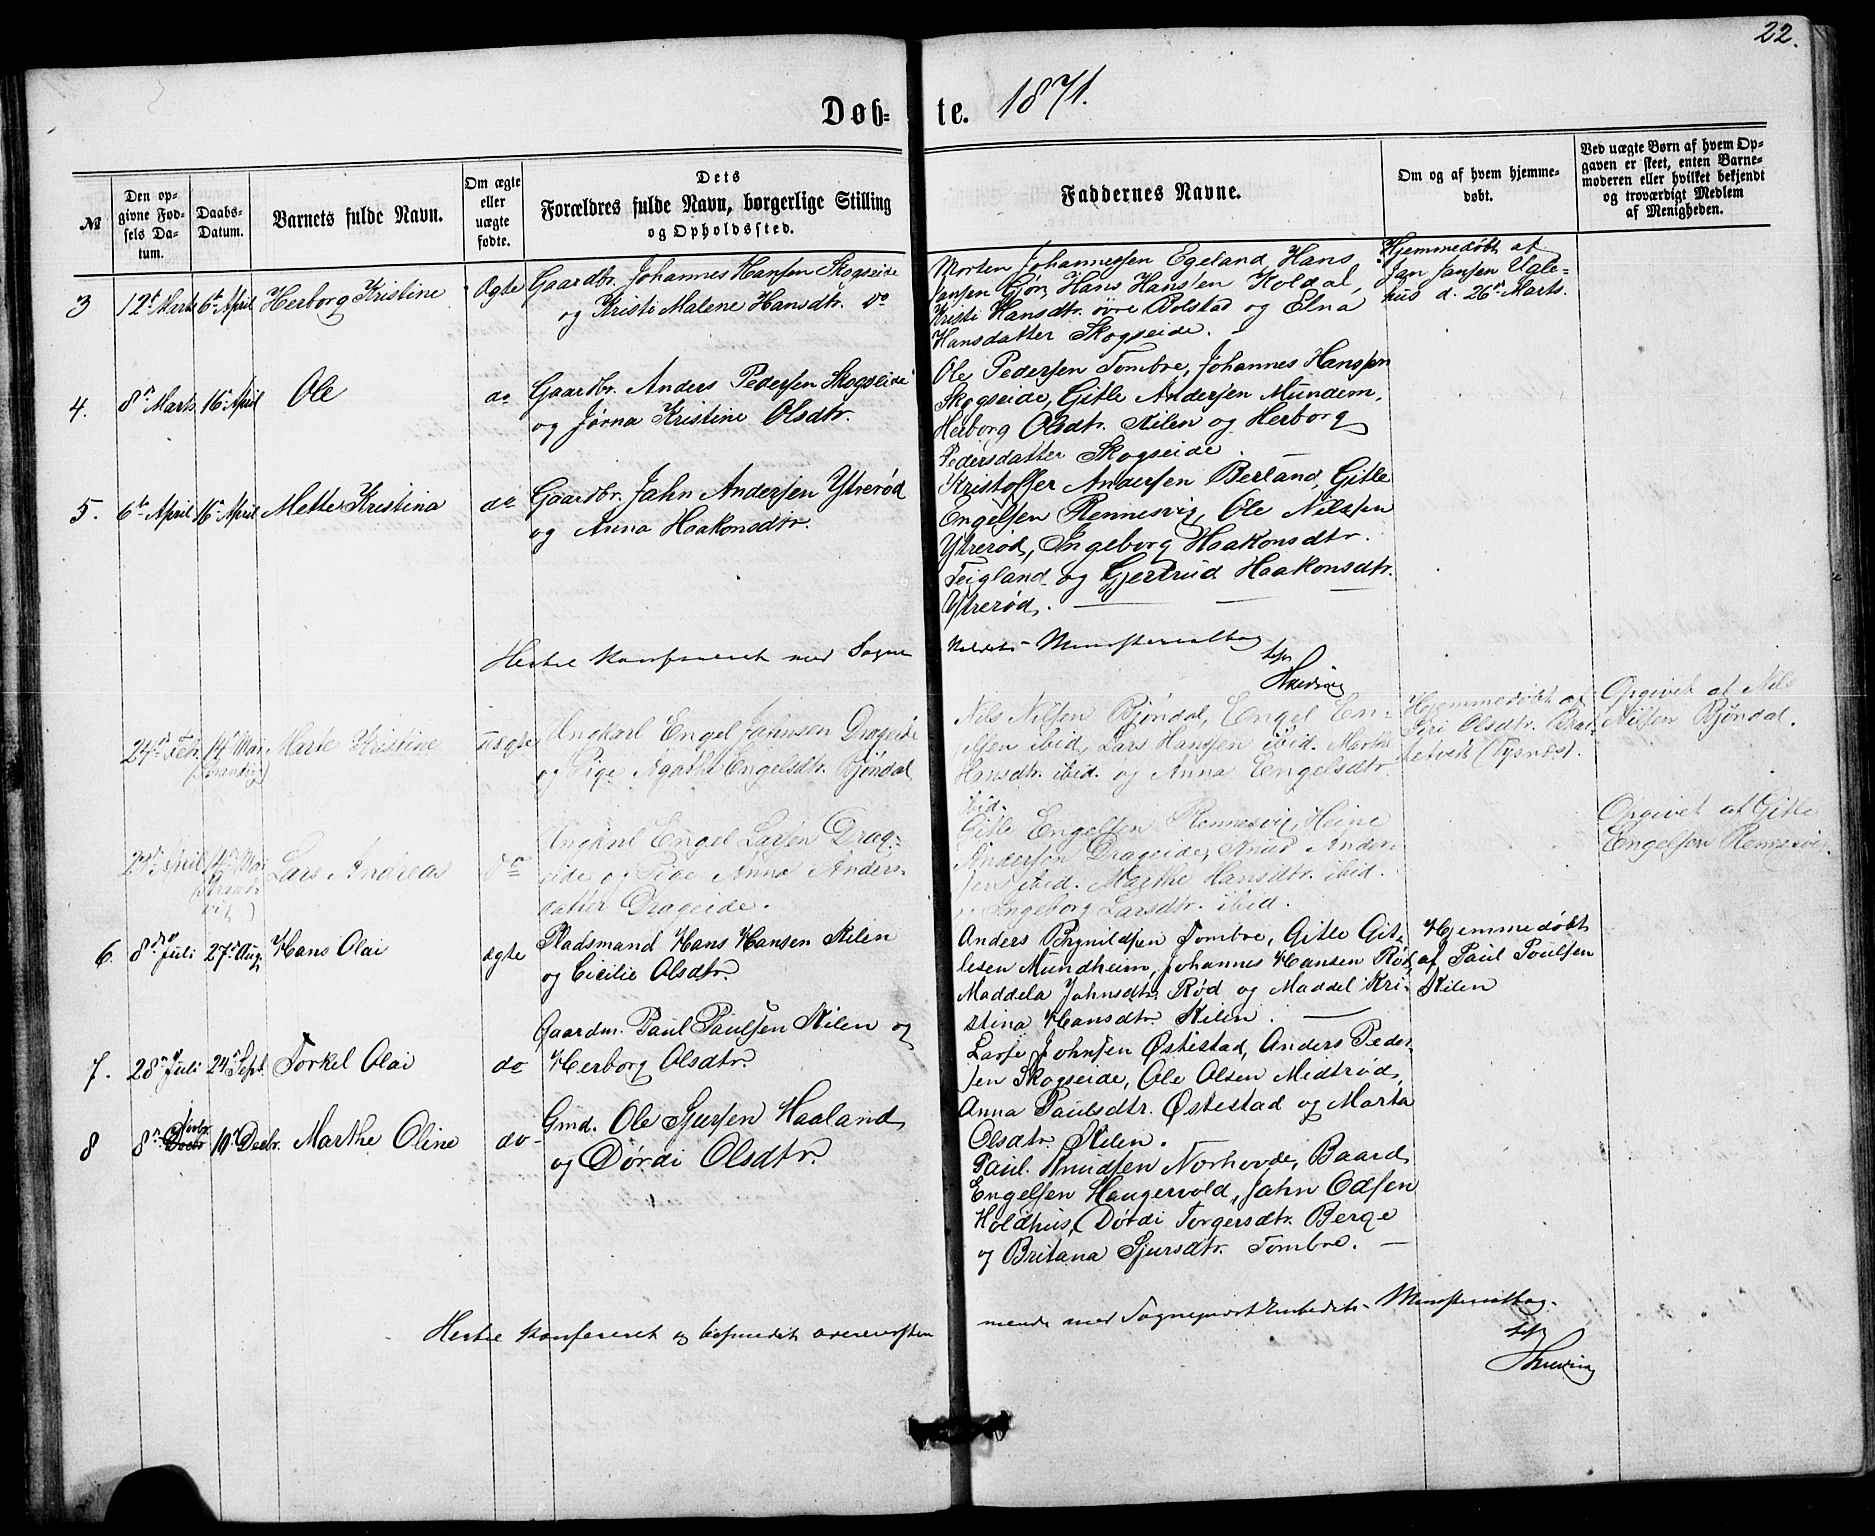 22.
Døb=te. 1871.
№
Den op-
givne Fød-
sels Da-
tum.
Daabs-
Datum.
Barnets fulde Navn.
Om ægte
eller
uægte
fødte.
Dets
Forældres fulde Navn, borgerlige Stilling
og Opholdssted.
Faddernes Navne.
Om og af hvem hjemme-
døbt.
Ved uægte Børn af hvem Op-
gaven er skeet, enten Barne-
moderen eller hvilket bekjendt
og troværdigt Medlem
af Menigheden.
3
12te Marts
6te April
Herborg Kristine
ægte
Gaardbr. Johannes Hansen Skogseide
og Kristi Malene Hansdtr. do
Morten Johannessen Egeland, Hans
Jansen Gjøn, Hans Hansen Koldal,
Kristi Hansdtr. øvre Bolstad og Elna
Hansdatter Skogseide.
Hjemmedøbt af
Jan Jansen Ugle-
hus d. 26de Marts.
4.
8de Marts
16de April
Ole
do
Gaardbr. Anders Pedersen Skogseide
og Jørna Kristine Olsdtr.
Ole Pedersen Tombre, Johannes Hanssen
Skogseide, Gitle Andersen Mundem,
Herborg Olsdtr. Kilen og Herborg
Pedersdatter Skogseide.
5.
6te April
16de April
Mette Kristina
do
Gaardbr. Jahn Andersen Ytrerød
og Anna Haakonsdtr.
Kristoffer Andersen Berland, Gitle
Engelsen Rennesvig, Ole Nilssen
Ytrerød, Ingeborg Haakonsdtr.
Teigland og Gjertrud Haakonsdtr.
Ytrerød.
konfereret med Sogne
Ministerialbog
24de Febr.
14de Mai
(Strandvig)
Marte Kristine
uægte
Ungkarl Engel Jahnsen Drageide
og Pige Agathe Engelsdtr. Bjøndal
Nils Nilsen Bjøndal, Engel En-
elsen ibid, Lars Hansen ibid. Marthe
Hansdtr. ibid. og Anna Engelsdtr.
ibid.
Hjemmedøbt af
Siri Olsdtr.
(Tysnes).
Opgivet af Nils
Nilsen Bjøndal.
April
14de Mai
(Strand-
vig)
Lars Andreas
do
Ungkarl Engel Larsen Drag-
eide og Pige Anna Anders-
datter Drageide.
Gitle Engelsen Rennesvig, Heine
Andersen Drageide, Knud Ander-
sen ibid. Marthe Hansdtr. ibid.
og Ingeborg Larsdtr. ibid.
Opgivet af Gitle
Engelsen Rennesvig.
6.
8de Juli
27de Aug.
Hans Olai
ægte
Pladsmand Hans Hansen Kilen
og Cicilie Olsdtr.
Anders Brynildsen Tombre, Gitle Git-
lesen Mundheim, Johannes Hansen Rød,
Maddela Johnsdtr. Rød og Maddel Kri-
stina Hansdtr. Kilen.
Hjemmedøbt
af Paul Poulsen
Kilen
7.
28de Juli
24de Sept.
Torkel Olai
do
Gaardm. Paul Paulsen Kilen og
Herborg Olsdtr.
Lasse Johnsen Østestad, Anders Peder-
sen Skogseide, Ole Olsen Midtrød,
Anna Paulsdtr. Østestad og Marta
Olsdtr. Kilen.
8
8de Decbr Novbr.
10de Decbr.
Marthe Oline
do
Gmd. Ole Sjursen Haaland
og Dørdi Olsdtr.
Paul Knudsen Norhovde, Baard
Engelsen Haugervold, Jahn Odsen
Holdhus, Dørdi Torgersdtr. Berge
og Britana Sjursdtr. Tombre.
konfereret og befundet overensstem
mende med Sogneprest Embedets Ministerialbog.